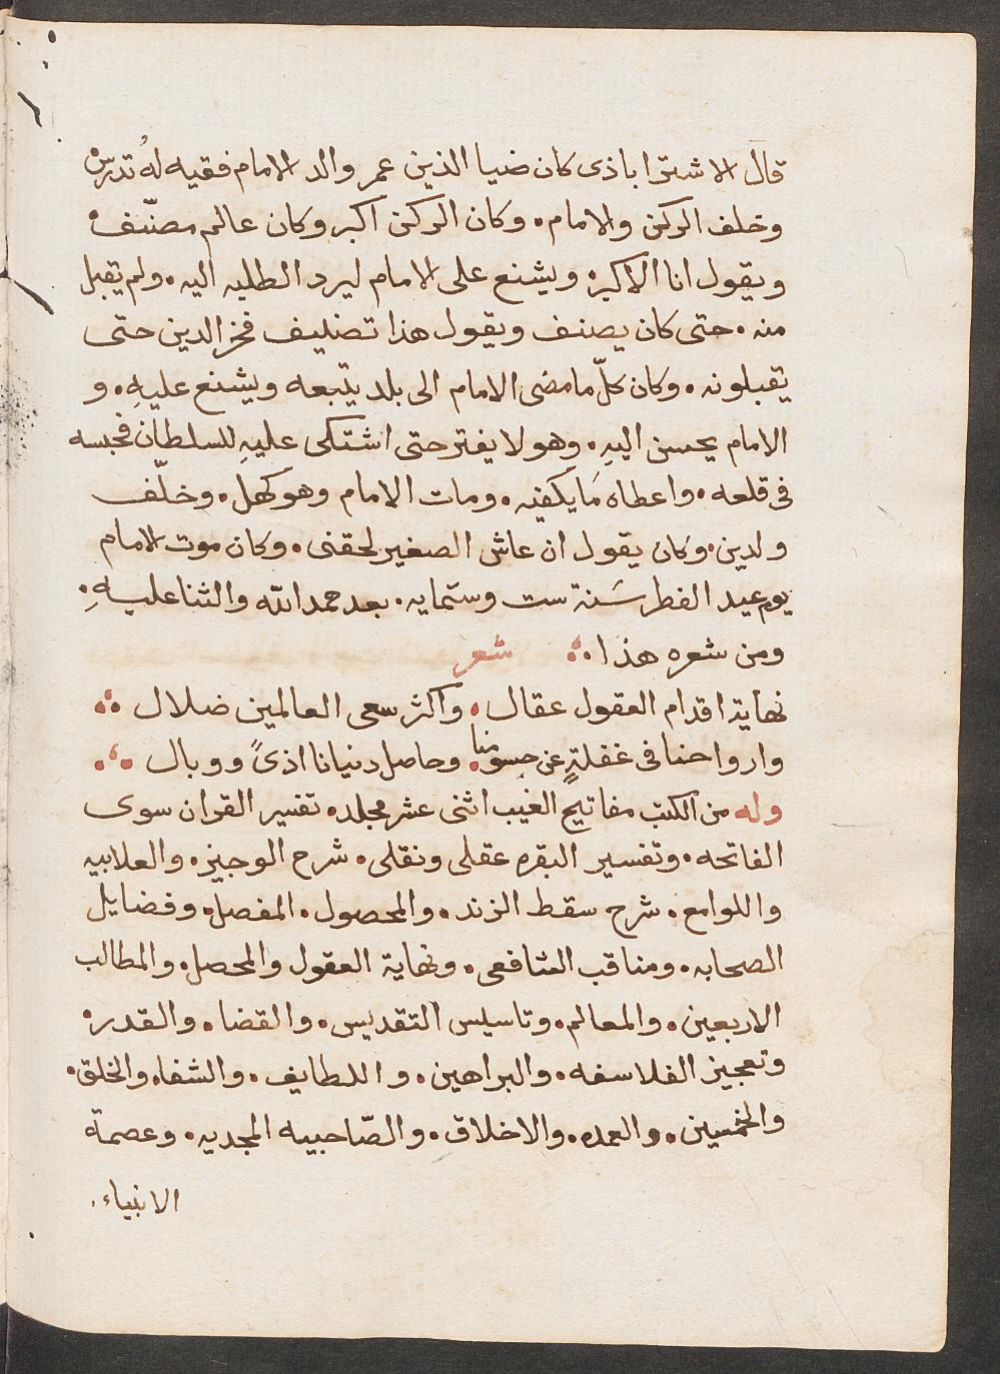 قال الاشتراباذى كان ضيا الدين عمر والد الامام فقيه له تدرّس
وخلف الركن والامام. وكان الركن اكبر وكان عالم مصنّف
ويقول انا الاكبر ويشنع على الامام ليرد الطلبه اليه. ولم يقبل
منه. حتى كان يصنف ويقول هذا تصنيف فخر الدين حتى
يقبلونه. وكان كلّ ما مضى الامام الى بلد يتبعه ويشنع عليهِ. و
الامام يحسن اليهِ. وهو لا يفتر حتى اشتكى عليهِ للسلطان فحبسه
فى قلعه. واعطاه مَا يكفيه. ومات الامام وهو كهل. وخلّف
ولدين. وكان يقول ان عاش الصغير لحقنى. وكان موت الامام
يوم عيد الفطر سَنة ست وستمايه. بعد حمد الله والثنا عليهِ.
ومن شعره هذا ؞ شعر
نهاية اقدام العقول عقال. واكثر سعى العالمين ضلال ؞
وارواحنا فى غفلةٍ عن جسومنا. وحاصل دنيانا اذىً ووبال ؞
وله من الكتب مفاتيح الغيب اثنى عشر مجلد. تفسير القران سوى
الفاتحه. وتفسير البقره عقلى ونقلى. شرح الوجيز. والعلابيه
واللوامع. شرح سقط الزند. والمحصول. المفصل. وفضايل
الصحابه. ومناقب الشافعى. ونهاية العقول والمحصل. والمطالب
الاربعين. والمعالم. وتاسيس التقديس. والقضا. والقدر
وتعجيز الفلاسفه. والبراهين. واللطايف. والشفا. والخلق.
والخمسين. والعمده. والاخلاق. والصّاحبيه المجديه. وعصمة
الانبياء.